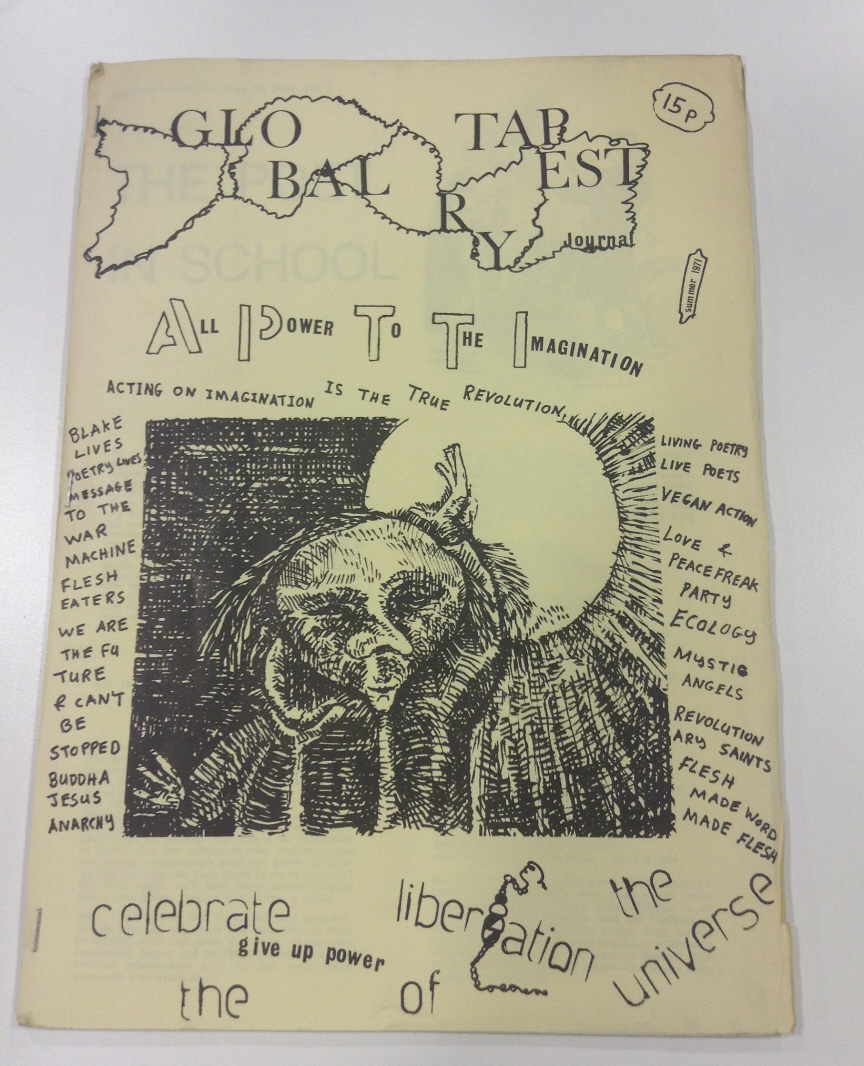 GLO
BAL
TAP
EST
R
Y
Journal
15p
summer 1971
ALL POWER TO THE IMAGINATION
ACTING ON IMAGINATION IS THE TRUE REVOLUTION
BLAKE
LIVES
POETRY LIVES
MESSAGE
TO THE
WAR
MACHINE
FLESH
EATERS
WE ARE
THE FU
TURE
& CAN'T
BE
STOPPED
BUDDHA
JESUS
ANARCHY
LIVING POETRY
LIVE POETS
VEGAN ACTION
LOVE &
PEACE FREAK
PARTY
ECOLOGY
MYSTIC
ANGELS
REVOLUTION
ARY SAINTS
FLESH
MADE WORD
MADE FLESH
celebrate liberation the
give up power
the of universe
THE P
IN SCHOOL